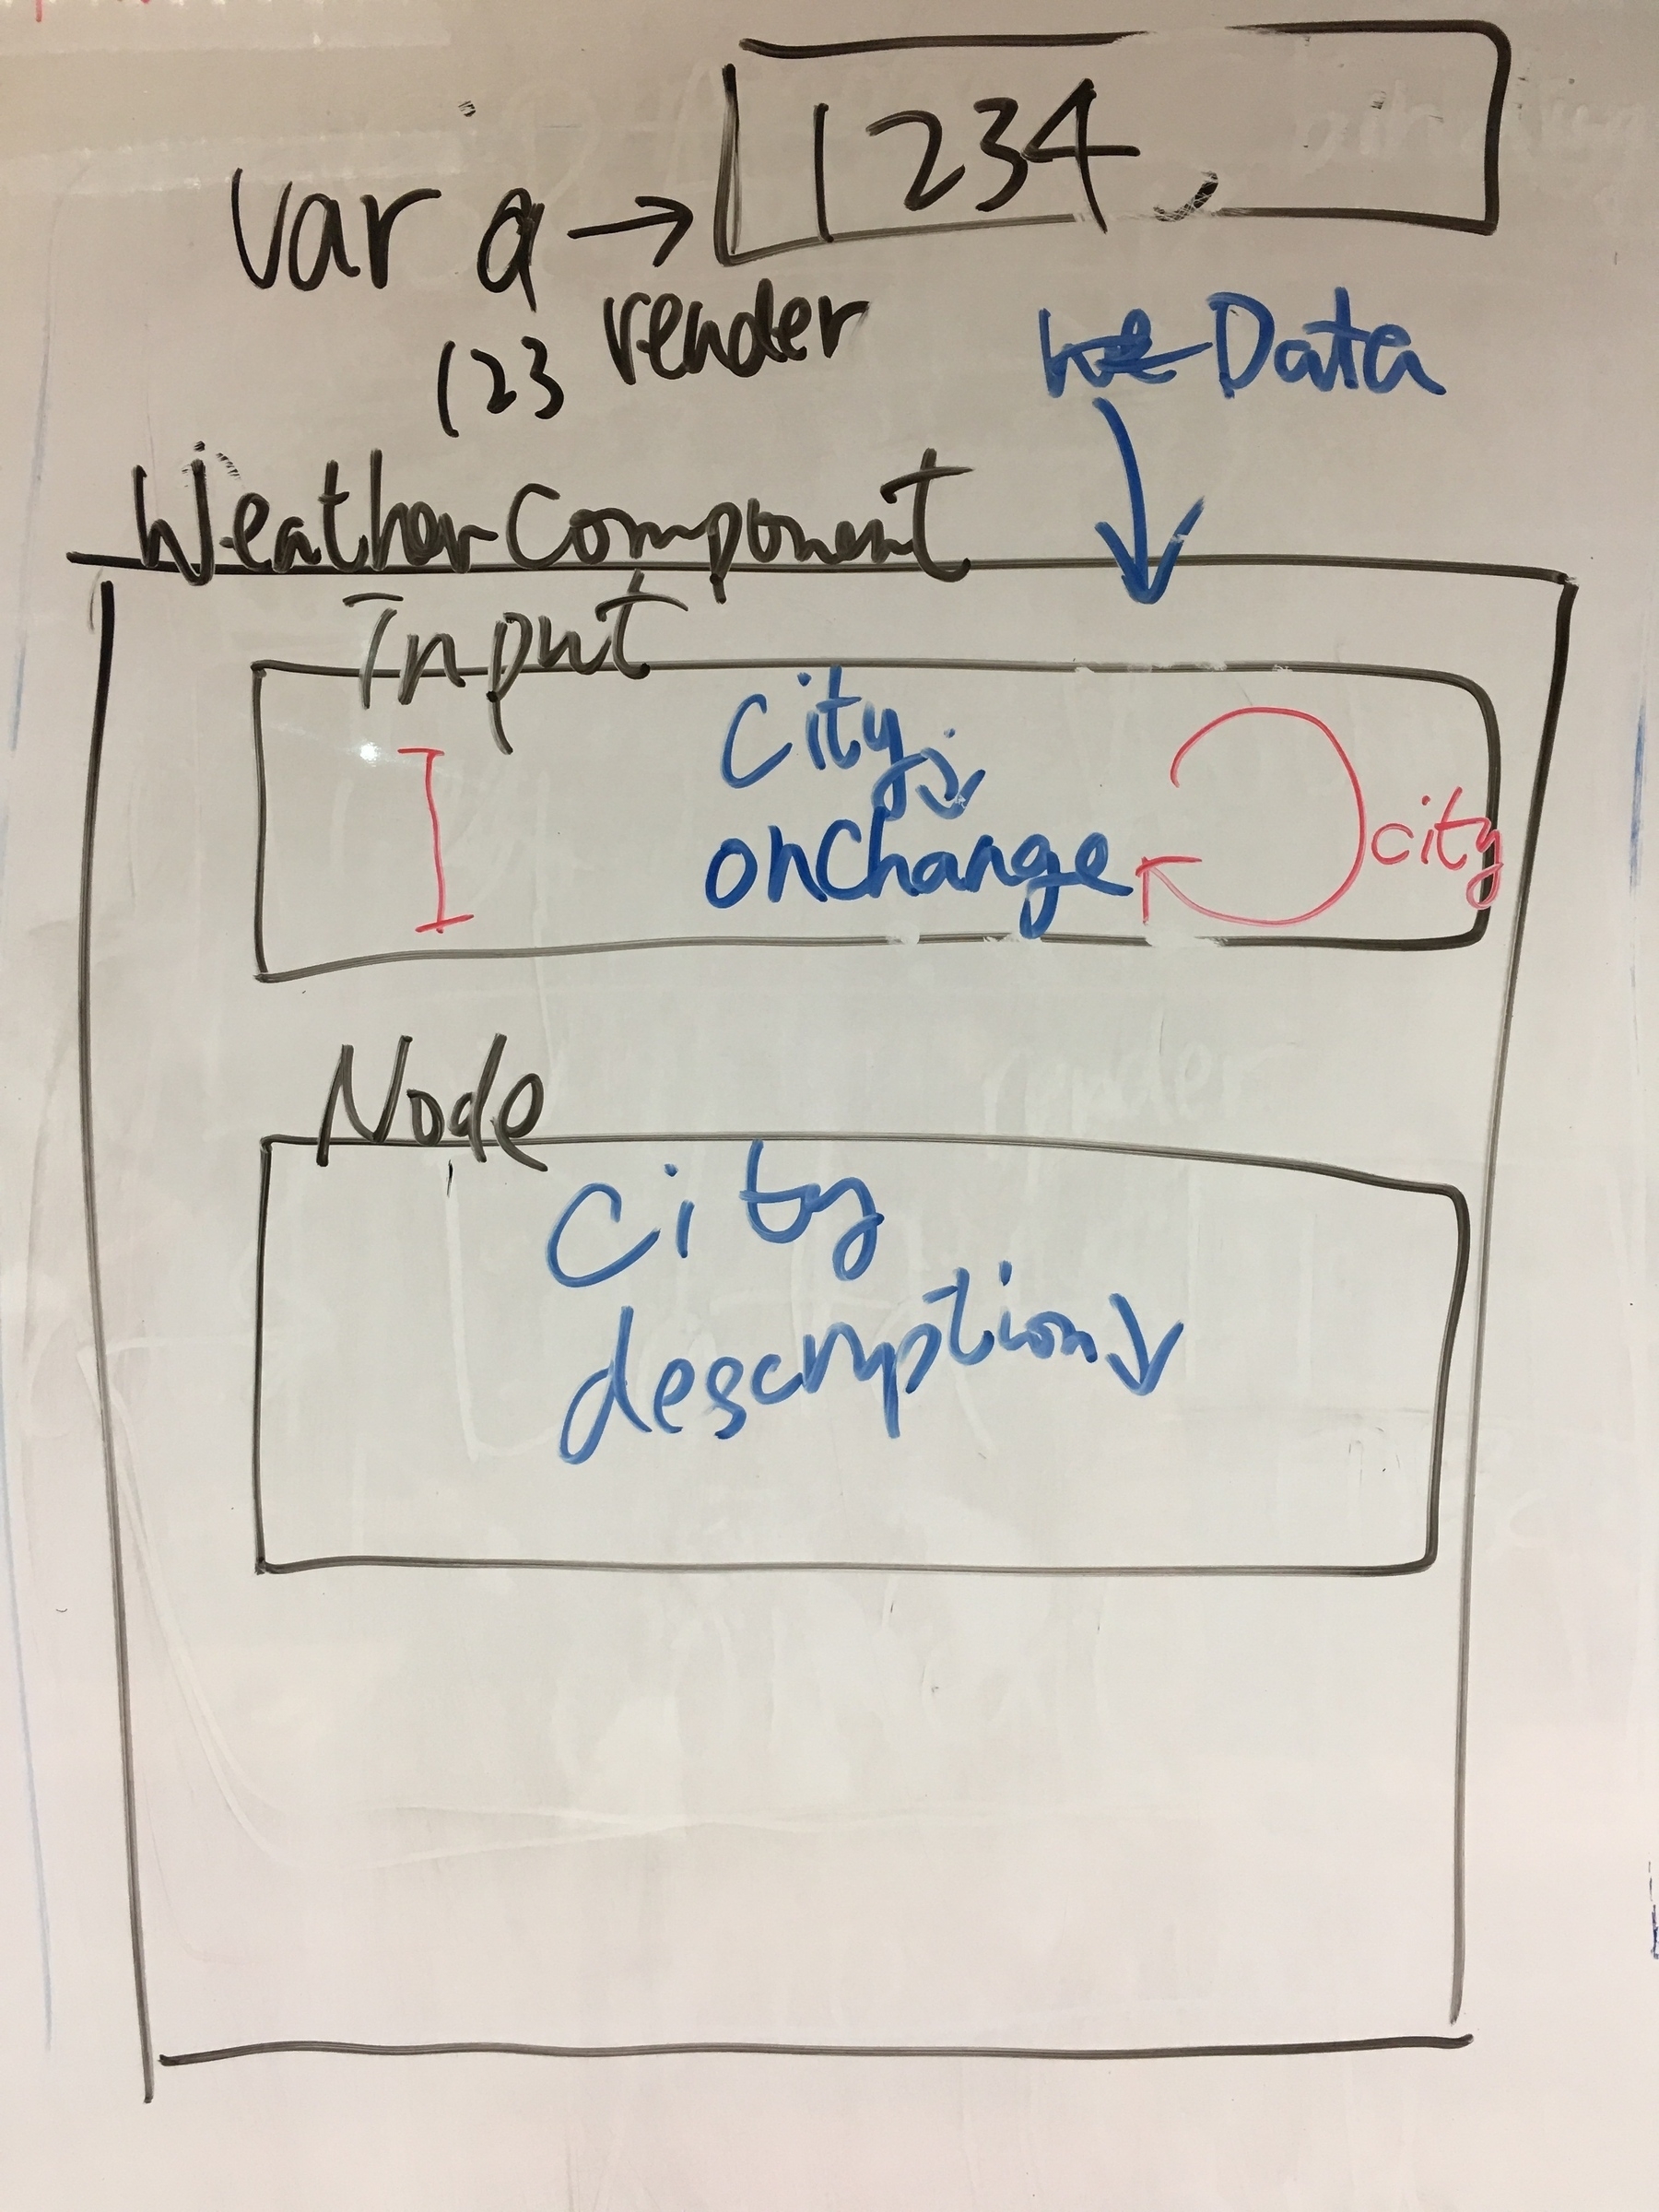 1234
var a →
123 render
Data
WeatherComponent
Input
City
onChange
city
Node
City
description